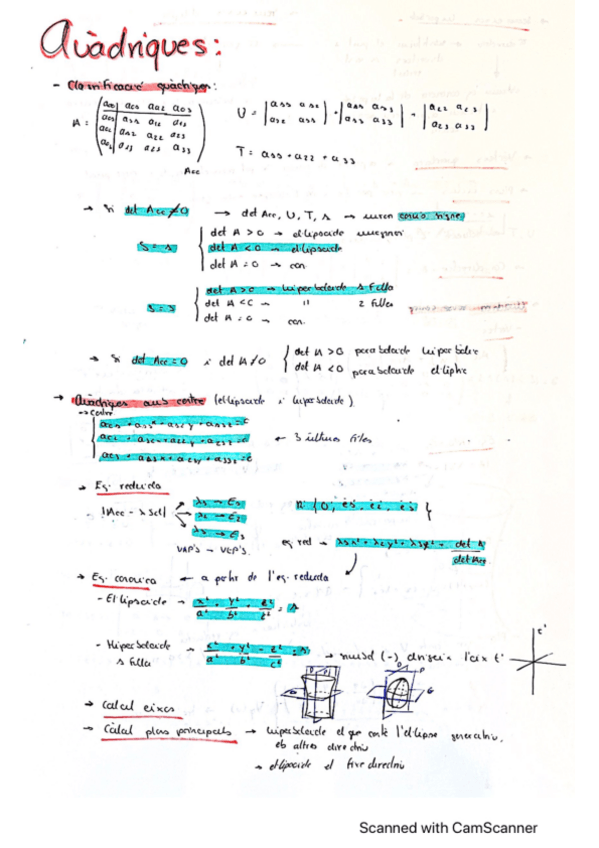 Quàdriques:
- Classificació quàdriques:
A = ( a00 a01 a02 a03
a01 a11 a12 a13
a02 a12 a22 a23
a03 a13 a23 a33 )
Acc
U = | a11 a12 | + | a11 a13 | + | a22 a23 |
| a12 a22 | | a13 a33 | | a23 a33 |
T = a11 + a22 + a33
→ Si det Acc ≠ 0 → det Acc, U, T, → mateix signe
det A > 0 → el·lipsoide imaginari
det A < 0 → el·lipsoide
det A = 0 → con
det A > 0 → hiperboloide 1 fulla
det A < 0 → " 2 fulles
det A = 0 → con.
→ Si det Acc = 0 i det A ≠ 0
det A > 0 paraboloide hiperbòlic
det A < 0 paraboloide el·líptic
→ Quàdriques amb centre (el·lipsoide i hiperboloide)
→ Centre
a01 + a11x + a12y + a13z = 0
a02 + a12x + a22y + a23z = 0
a03 + a13x + a23y + a33z = 0
← 3 últimes files
→ Eq. reduïda
|Acc - λId|
λ1 → e1
λ2 → e2
λ3 → e3
VAP'S → VEP'S.
R' { O', e1, e2, e3 }
eq red → λ1x² + λ2y² + λ3z² + det A / det Acc
→ Eq. canònica ← a partir de l'eq. reduïda
- El·lipsoide → x²/a² + y²/b² + z²/c² = 1
- Hiperboloide 1 fulla → x²/a² + y²/b² - z²/c² = 1
→ (-) l'eix z'
z'
→ Càlcul eixos
→ Càlcul plans principals → hiperboloide el que conté l'el·lipse generatriu,
els altres directriu
→ el·lipsoide el directriu
Scanned with CamScanner